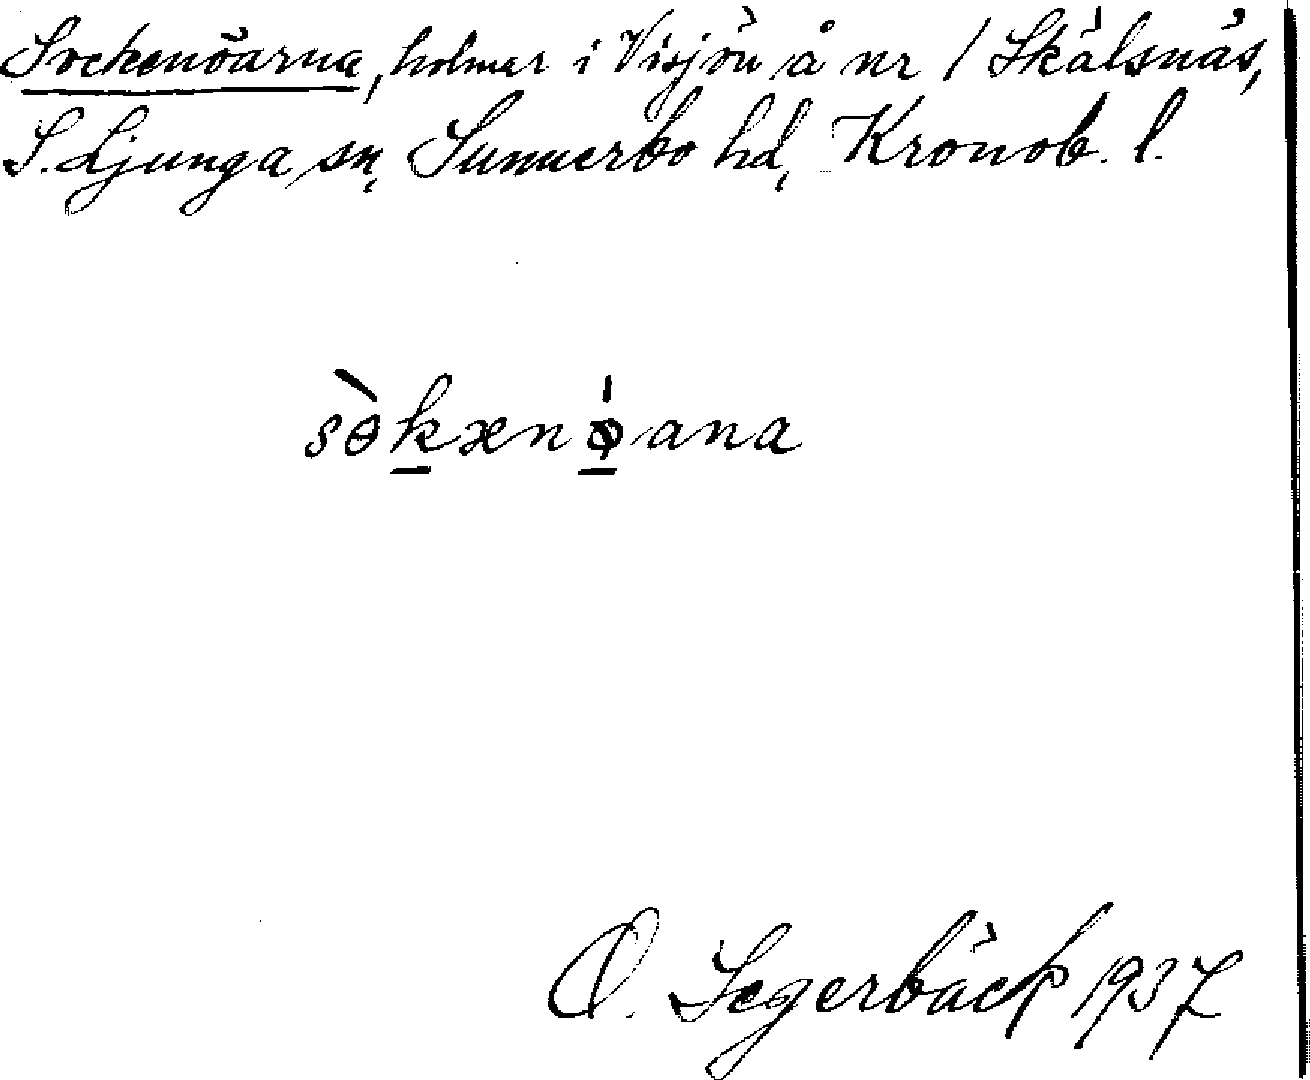 Sockenöarna, holmar i Visjön å nr 1 Skälsnäs,
S. Ljunga sn, Sunnerbo hd, Kronob. l.
sɵ̀kænǿana
O. Segerbäck 1937